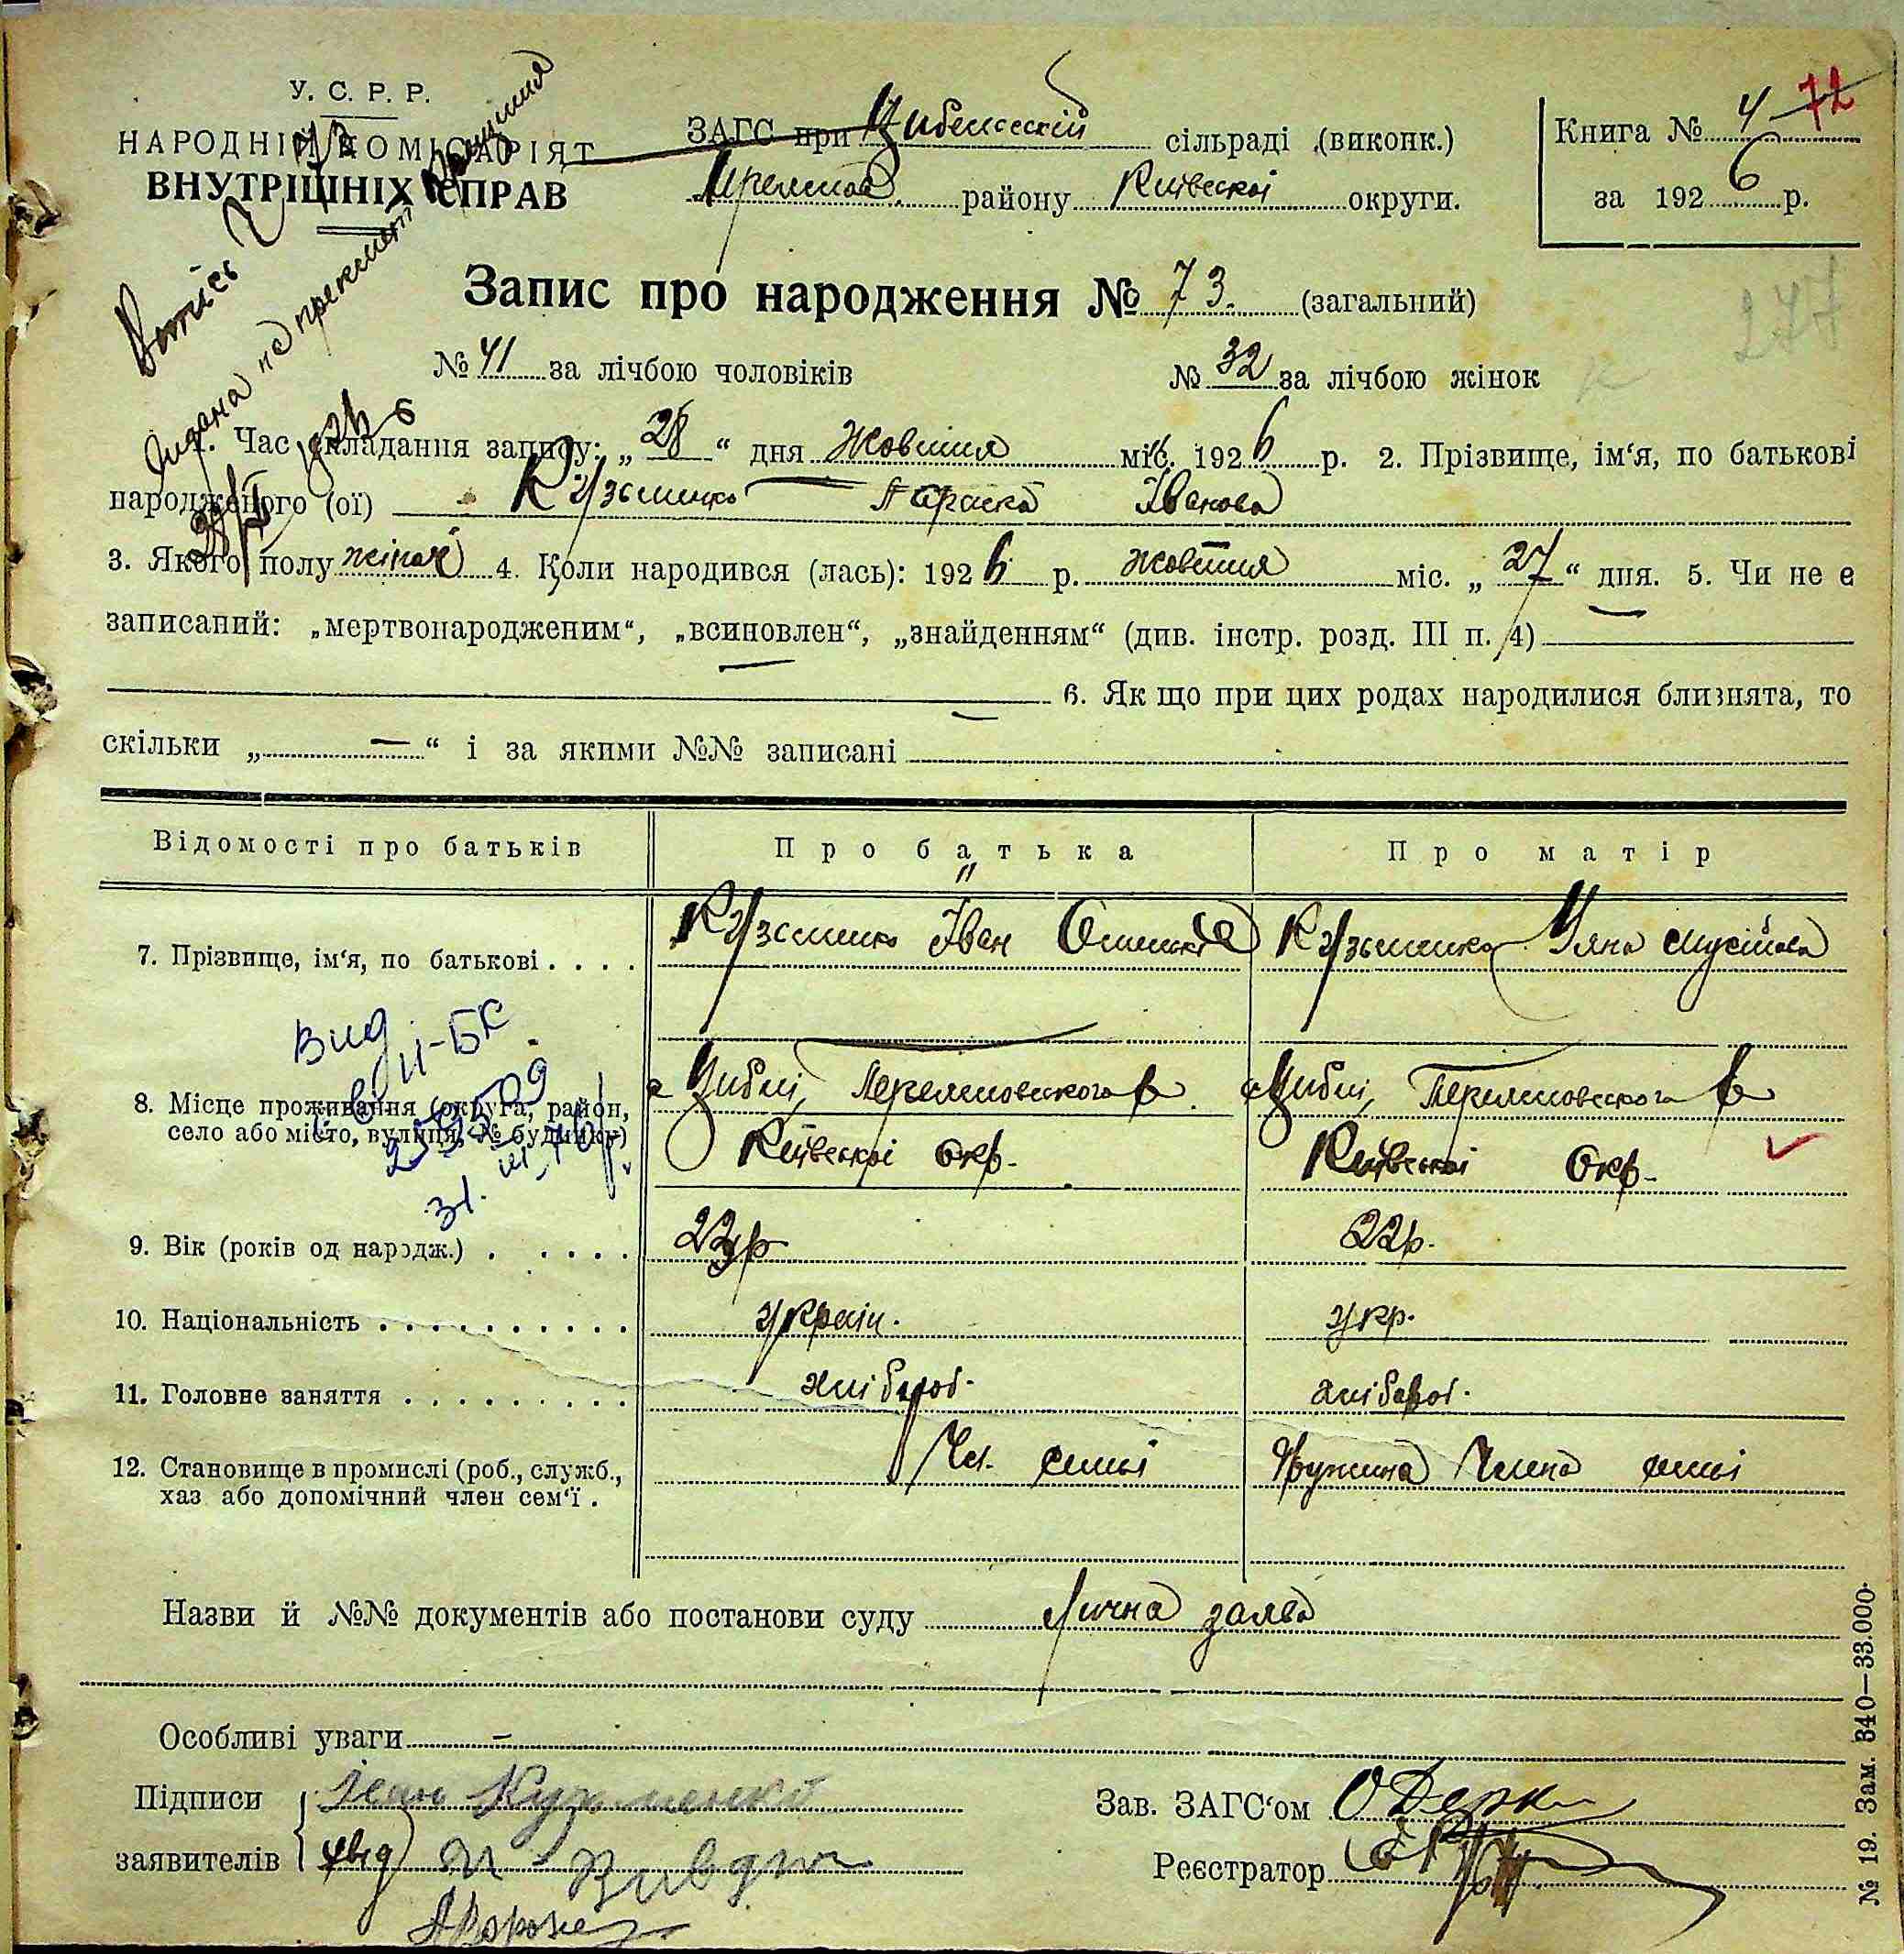 У. С. Р. Р.
НАРОДНІЙ КОМІСАРІЯТ
ВНУТРІШНІХ СПРАВ
ЗАГС при сільраді (виконк.)
району Київської округи.
Книга № 4 72
за 1926 р.
277
Запис про народження № 73. (загальний)
№ 41 за лічбою чоловіків
№ 32 за лічбою жінок
1. Час складання запису: „28“ дня Жовтня міс. 1926 р. 2. Прізвище, ім‘я, по батькові
народженого (ої) Кузьменко Параска Іванова
3. Якого полу жіноч 4. Коли народився (лась): 1926 р. жовтня міс. „27“ дня. 5. Чи не є
записаний: „мертвонародженим“, „всиновлен“, „знайденням“ (див. інстр. розд. III п. 4)
6. Як що при цих родах народилися близнята, то
скільки „ — “ і за якими №№ записані
Відомості про батьків
Про батька
Про матір
7. Прізвище, ім‘я, по батькові . . . .
Кузьменко Іван
Кузьменко Уляна Мусійова
Вид
II-БК
8. Місце проживання (округа, район,
село або місто, вулиця, № будинку)
с Циблі, Переяловського р.
Київської окр.
с Циблі, Переяловського р
Київської Окр.
9. Вік (років од народж.) . . . . .
22р.
10. Національність . . . . . . . . . .
україн.
укр.
11. Головне заняття . . . . . . . . .
хлібороб.
хлібороб.
12. Становище в промислі (роб., служб.,
хаз або допомічний член сем‘ї .
Чл. семьї
Дружина Члена семьї
Назви й №№ документів або постанови суду Лична заява
Особливі уваги –
Підписи
заявителів
Іван Кузьменко
Зав. ЗАГС‘ом
Реєстратор
№ 19. Зам. 340—33.000